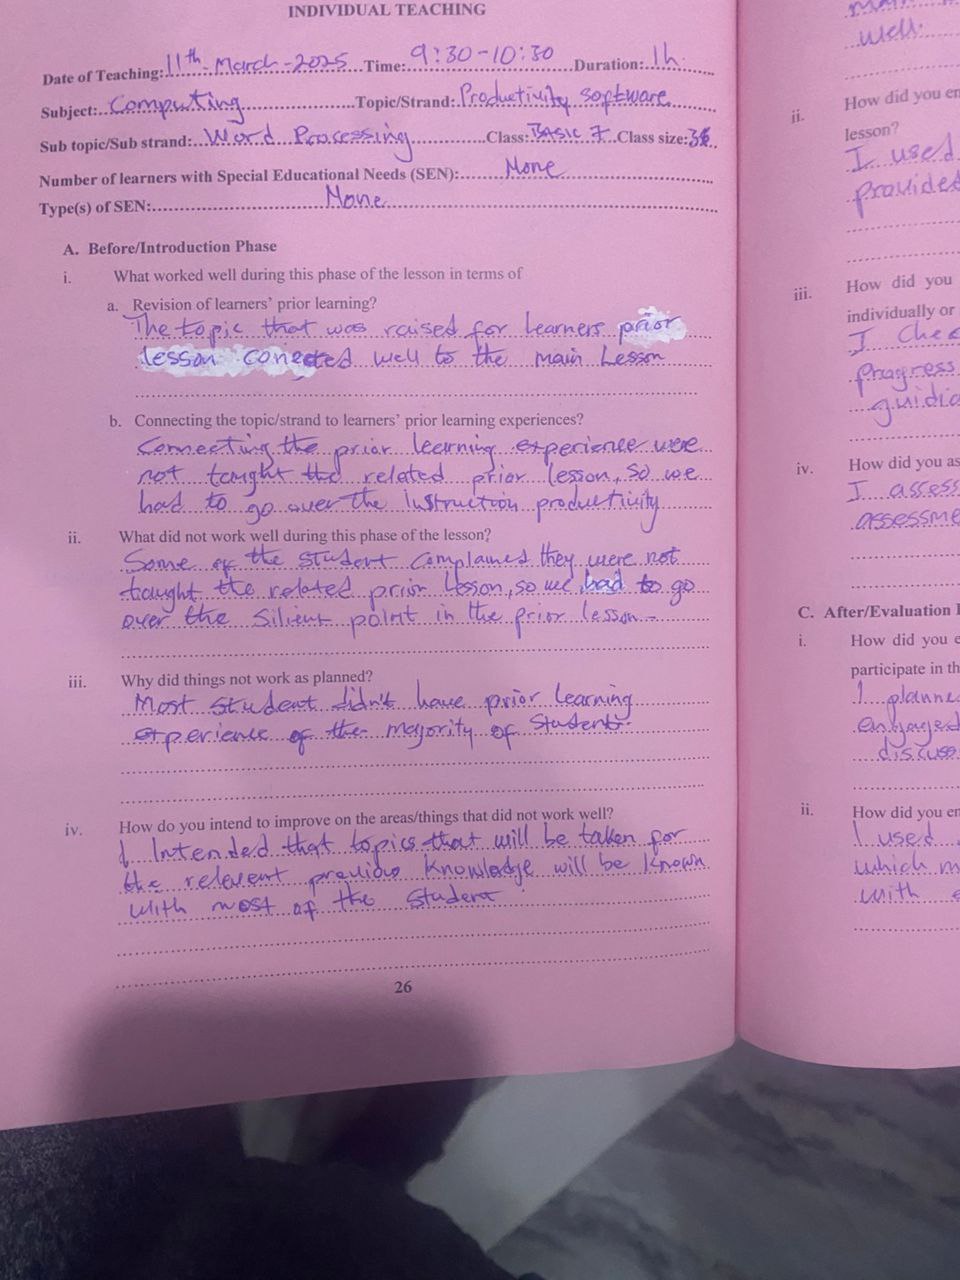 INDIVIDUAL TEACHING
Date of Teaching: 11th - March - 2025 Time: 9:30-10:30 Duration: 1h
Subject: Computing Topic/Strand: Productivity software
Sub topic/Sub strand: Word Processing Class: BASIC 7 Class size: 36
Number of learners with Special Educational Needs (SEN): None
Type(s) of SEN: None
A. Before/Introduction Phase
i. What worked well during this phase of the lesson in terms of
a. Revision of learners' prior learning?
The topic that was raised for learners prior
lesson conected well to the main Lesson
b. Connecting the topic/strand to learners' prior learning experiences?
Connecting the prior learning experience were
not taught the related prior lesson, so we
had to go over the Instruction productivity
ii. What did not work well during this phase of the lesson?
Some of the student complained they were not
taught the related prior lesson, so we had to go
over the silient point in the prior lesson -
iii. Why did things not work as planned?
Most student didn't have prior learning
experience of the majority of students.
iv. How do you intend to improve on the areas/things that did not work well?
I Intended that topics that will be taken for
the relevent previous knowledge will be known
with most of the student
26
well.
ii. How did you en
lesson?
I used
provided
iii. How did you
individually or
I chec
progress
guidia
iv. How did you as
I assess
assessme
C. After/Evaluation
i. How did you e
participate in th
I planne
engaged
discuss
ii. How did you en
I used
which m
with